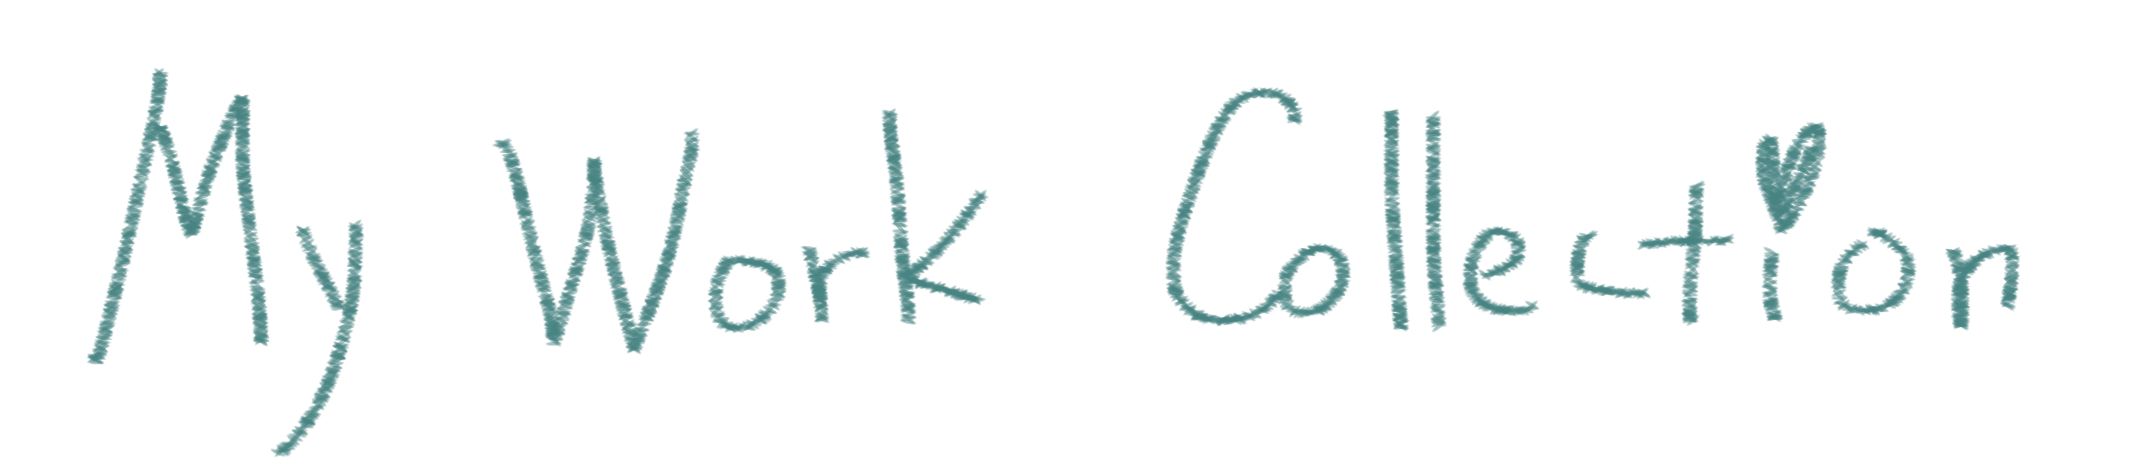 My Work Collection